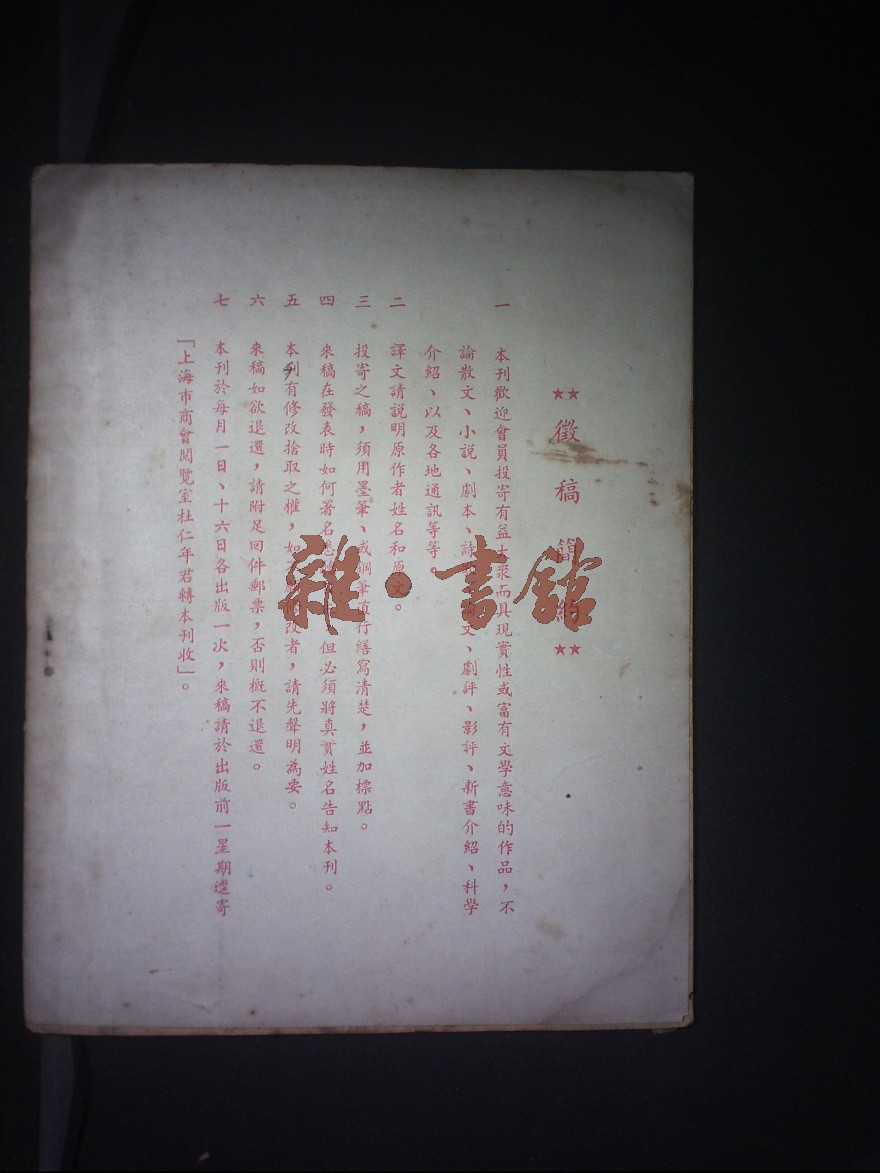 ★★徵稿簡約★★
一 本刊歡迎會員投寄有益大衆而具現實性或富有文學意味的作品，不
論散文、小説、劇本、詩文、劇評、影評、新書介紹、科學
介紹、以及各地通訊等等。
二 譯文請説明原作者姓名和原文。
三 投寄之稿，須用墨筆、或鋼筆直行繕寫清楚，並加標點。
四 來稿在發表時如何署名悉但必須將真實姓名告知本刊。
五 本刊有修改捨取之權，如改者，請先聲明為要。
六 來稿如欲退還，請附足回件郵票，否則概不退還。
七 本刊於每月一日、十六日各出版一次，來稿請於出版前一星期逕寄
「上海市商會閱覽室杜仁年君轉本刊收」。
雜·書館